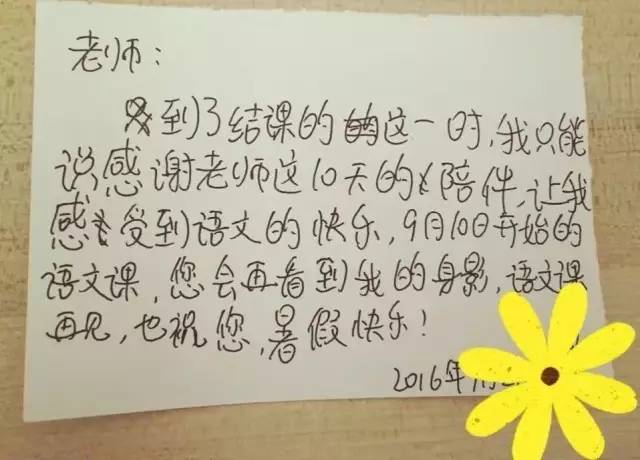 老师：
到了结课的这一时，我只能
说感谢老师这10天的陪件，让我
感受到语文的快乐，9月10日开始的
语文课，您会再看到我的身影，语文课
再见，也祝您，暑假快乐！
2016年